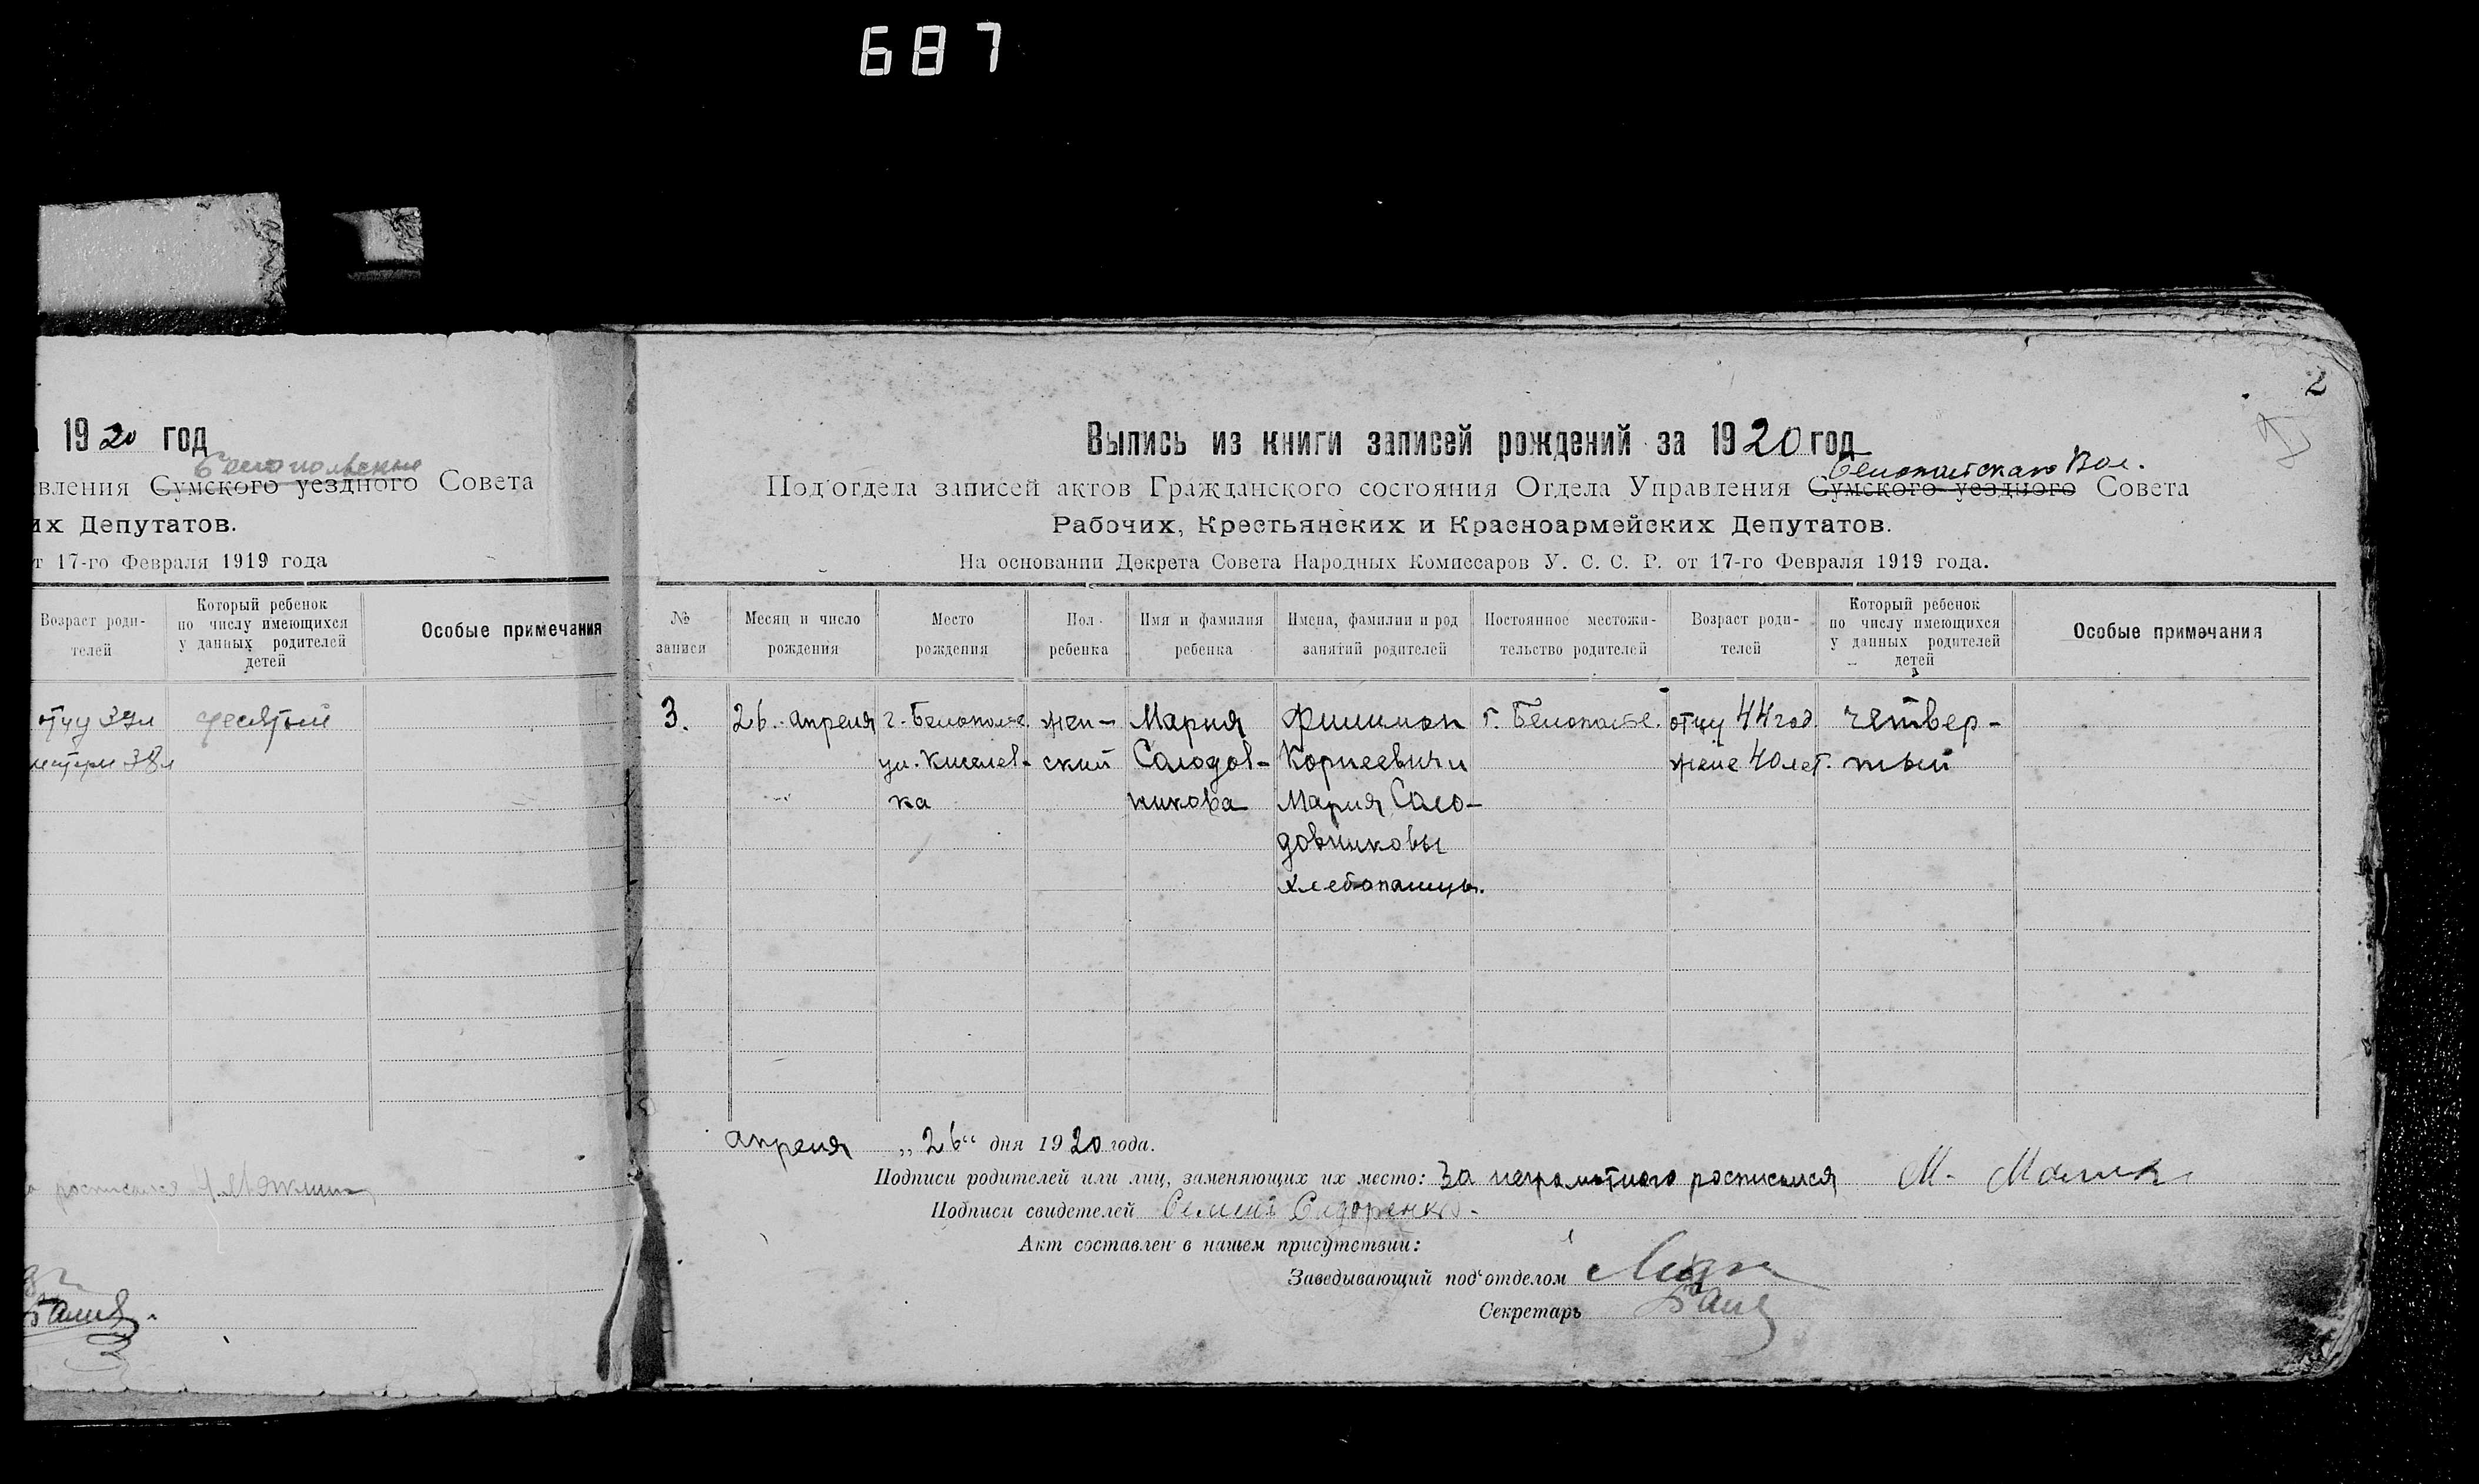 687
2
1920 год
Белопольского
вления Сумского уездного Совета
их Депутатов.
т 17-го Февраля 1919 года
Возраст роди-
телей
Который ребенок
по числу имеющихся
у данных родителей
детей
Особые примечания
отцу 39л десятый
матери 38л
росписался
Выпись из книги записей рождений за 1920 год
Белопольскаго Вол.
Под'отдела записей актов Гражданского состояния Отдела Управления Сумского уездного Совета
Рабочих, Крестьянских и Красноармейских Депутатов.
На основании Декрета Совета Народных Комиссаров У. С. С. Р. от 17-го Февраля 1919 года.
№
записи
Месяц и число
рождения
Место
рождения
Пол
ребенка
Имя и фамилия
ребенка
Имена, фамилии и род
занятий родителей
Постоянное местожи-
тельство родителей
Возраст роди-
телей
Который ребенок
по числу имеющихся
у данных родителей
детей
Особые примечания
3. 26. апреля г. Белополье. жен- Мария Филимон г. Белополье. отцу 44 год. четвер-
ул. Киселев- ский Салодов- Корнеевич и жене 40 лет. тый
ка никова Мария Сало-
довниковы
хлебопашцы.
апреля „26“ дня 1920 года.
Подписи родителей или лиц, заменяющих их место: За неграмотного росписался М.
Подписи свидетелей Семен Сидоренко.
Акт составлен в нашем присутствии:
Заведывающий под'отделом
Секретарь